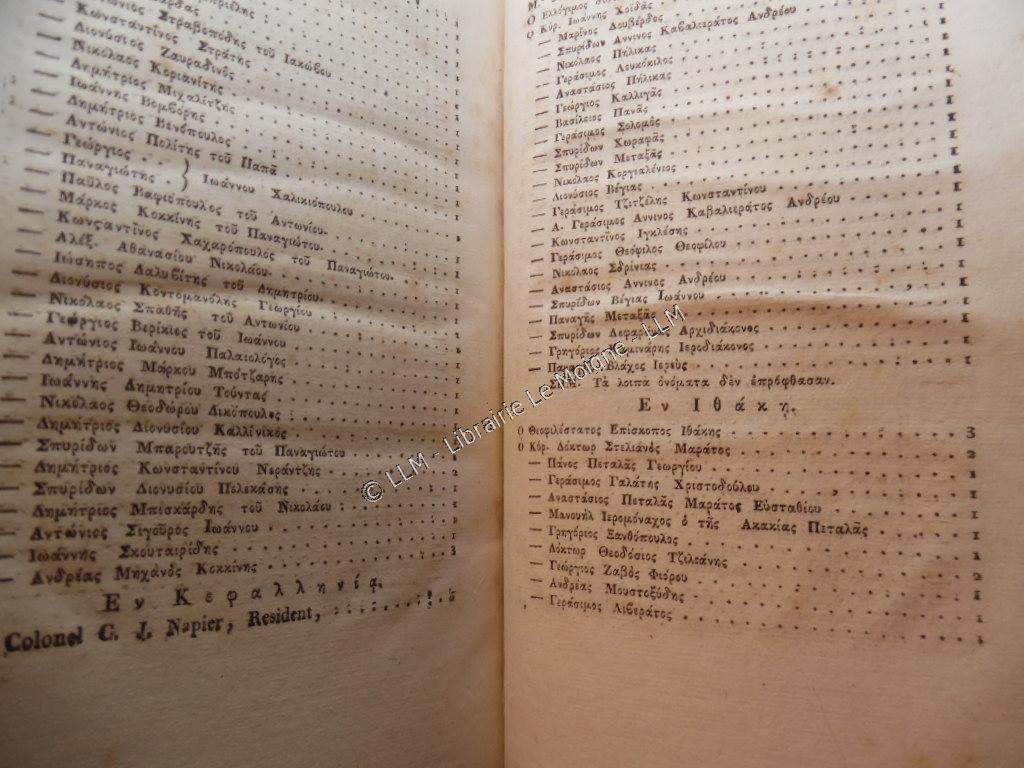 Στραβοπόδης τοῦ Ιακώβου
Κωνσταντῖνος Στράτης
— Διονύσιος Ζαυραδινὸς
— Νικόλαος Κοριανίτης
— Δημήτριος Μιχαλίτζης
— Ιωάννης Βομβόρης
— Δημήτριος Βενόπουλος
— Αντώνιος Πολίτης τοῦ Παπᾶ
— Γεώργιος . . } Ιωάννου Χαλικιόπουλου
— Παναγιώτης . }
— Παῦλος Βαφιόπουλος τοῦ Αντωνίου.
— Μάρκος Κοκκίνης τοῦ Παναγιώτου.
— Κωνςαντῖνος Χαχαρόπουλος τοῦ Παναγιώτου.
— Αλέξ. Αθανασίου Νικολάου.
— Ιώσηπος Δαλυβίτης τοῦ Δημητρίου.
— Διονύσιος Κοντομανόλης Γεωργίου
— Νικόλαος Σπαθῆς τοῦ Αντωνίου
— Γεώργιος Βερίκιος τοῦ Ιωάννου
— Αντώνιος Ιωάννου Παλαιολόγος
— Δημήτριος Μάρκου Μπότζαρης
— Ιωάννης Δημητρίου Τούντας
— Νικόλαος Θεοδώρου Δικόπουλος
— Δημήτριος Διονυσίου Καλλίνικος
— Σπυρίδων Μπαρουτζῆς τοῦ Παναγιώτου
— Δημήτριος Κωνσταντίνου Νεράντζης 2
— Σπυρίδων Διονυσίου Πολεκάσης 1
— Δημήτριος Μπισκάρδης τοῦ Νικολάου 1
— Αντώνιος Σιγοῦρος Ιωάννου 1
— Ιωάννης Σκουταιρίδης 1
— Ανδρέας Μηχανὸς Κοκκίνης 3
Εν Κεφαλληνίᾳ.
Colonel C. J. Napier, Resident,
Ο Κύρ. Ιωάννης Χοϊδᾶς
— Μαρῖνος Λουβέρδος
— Σπυρίδων Αννινος Καβαλιεράτος Ανδρέου
— Νικόλαος Πήλικας
— Γεράσιμος Λευκόκιλος
— Αναστάσιος Πήλικας
— Γεώργιος Καλλιγᾶς
— Βασίλειος Πανᾶς
— Γεράσιμος Σολομὸς
— Σπυρίδων Χωραφᾶς
— Σπυρίδων Μεταξᾶς
— Νικόλαος Κοργιαλένιος
— Διονύσιος Βέγιας
— Γεράσιμος Τζιτζέλης Κονσταντίνου 1
— Α. Γεράσιμος Αννινος Καβαλιεράτος Ανδρέου 1
— Κωνσταντῖνος Ιγκλέσης 1
— Γεράσιμος Θεόφιλος Θεοφίλου 1
— Νικόλαος Σδρίνιας 1
— Αναστάσιος Αννινος Ανδρέου 1
— Σπυρίδων Βέγιας Ιωάννου 1
— Παναγῆς Μεταξᾶς 1
— Σπυρίδων Αρχιδιάκονος 1
— Γρηγόριος Ιεροδιάκονος 1
Βλάχος Ιερεὺς 1
Τὰ λοιπὰ ὀνόματα δὲν ἐπρόφθασαν.
Εν Ιθάκῃ.
Ο Θιοφιλέστατος Επίσκοπος Ιθάκης 3
Ο Κύρ. Δόκτωρ Στελιανὸς Μαράτος 2
— Πάνος Πεταλᾶς Γεωργίου 1
— Γεράσιμος Γαλάτης Χριστοδούλου 1
— Αναστάσιος Πεταλᾶς Μαράτος Εὐσταθίου 1
— Μανουὴλ Ιερομόναχος ὁ τῆς Ακακίας Πεταλᾶς 1
— Γρηγόριος Ξανθόπουλος 1
— Δόκτωρ Θεοδόσιος Τζιλιάνης 2
— Γεώργιος Ζαβὸς Φιόρου 2
— Ανδρέας Μουστοξύδης 1
— Γεράσιμος Λιβεράτος 1
© LLM - Librairie Le Moigne - LLM